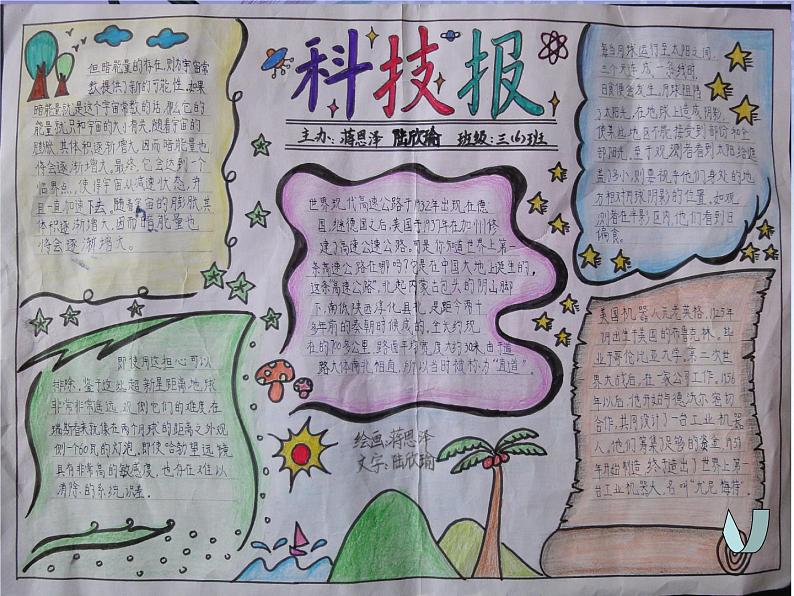 科技报
主办:蒋恩泽 陆欣瑜 班级:三(6)班
但暗能量的存在,则为宇宙常
数提供了新的可能性。如果
暗能量就是这个宇宙常数的话,那么它的
能量就只和宇宙的大小有关。随着宇宙的
膨胀,其体积逐渐增大,因而暗能量也
将会逐渐增大。最终,它会达到一个
临界点,使得宇宙从减速状态,并
且一直加速下去。随着宇宙的膨胀,其体
积逐渐增大,因而暗能量也
将会逐渐增大。
世界现代高速公路于1932年出现在德
国,继德国之后,美国于1937年在加州修
建了高速公速公路。可是,你知道世界上第一
条高速公路在哪吗?它是在中国大地上诞生的。
这条“高速公路”,北起内蒙古包头的阴山脚
下,南低陕西淳化县北,是距今两千
多年前的秦朝时候质的,全长约现
在的700多公里,路面平均宽度大约30米,由于道
路大体南北相直,所以当时被称为“直道”。
每当月球运行至太阳之间,
三个天连成一条线时,
日食便会发生,月球阻挡
了太阳光,在地球上造成阴影,
使某些地区不能接受到部份和全
部阳光。至于观测者看到太阳给遮
盖了多小,则要视乎他们身处的地
方相对月球阴影的位置。如观
测者在半影区内,他们看到日
偏食。
即使用这担心可以
排除,鉴于这此超新星距离地球
非常非常遥远,观侧它们的难度在
瑞斯看来就像在两个月球的距离之外观
侧一个60瓦的灯泡。即使哈勃望远镜
具有非常高的敏感度,也存在难以
消除的系统误差。
美国机器人元老英格,1925年
阴出生于美国的布鲁克林。毕
业于哥伦比亚大学。第二次世
界大战后,在一家公司工作。1956
年以后,他开始与德沃尔密切
合作,共同设计了一台工业机器
人。他们筹集足够的资金,
年开始制造,终于造出了世界上第一
台工业机器人,名叫“尤尼梅特”。
绘画:蒋恩泽
文字:陆欣瑜